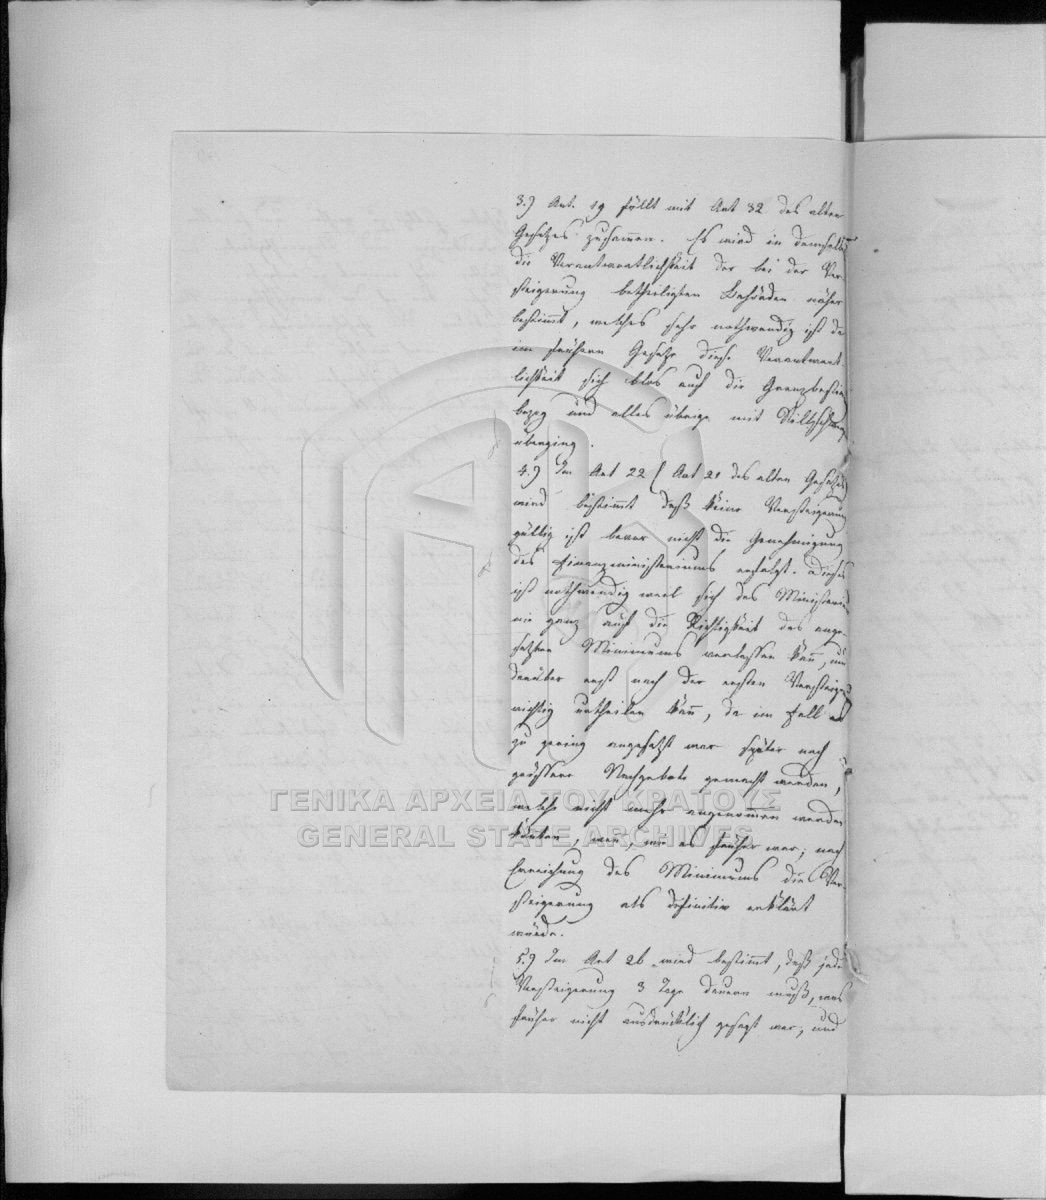 3.) Art. 19 fällt mit Art 32 des alten
Gesetzes zusammen. Es wird in demselben
die Verantwortlichkeit der bei der Ver-
steigerung betheiligten Behörden näher
bestimmt, welches sehr nothwendig ist da
im frühern Gesetze diese Verantwort-
lichkeit sich blos auf die
bezog und alles übrige mit Stillschweigen
überging.
4.) Im Art 22 (Art 21 des alten Gesetzes
wird bestimmt daß keine Versteigerung
gültig ist bevor nicht die Genehmigung
des Finanzministeriums erfolgt. Dieses
ist nothwendig weil sich das Ministerium
nie ganz auf die Richtigkeit des ange-
setzten Minimums verlassen kann, und
darüber erst nach der ersten Versteigerung
richtig urtheilen kann, da im Fall es
zu gering angesetzt war später noch
grössere Nachgebote gemacht werden,
welche nicht mehr angenommen werden
könnten, wenn, wie es früher war, nach
Erreichung des Minimums die Ver-
steigerung als definitiv erklärt
würde.
5.) Im Art 26 wird bestimmt, daß jede
Versteigerung 3 Tage dauern muß, was
früher nicht ausdrücklich gesagt war, und
ΓΕΝΙΚΑ ΑΡΧΕΙΑ ΤΟΥ ΚΡΑΤΟΥΣ
GENERAL STATE ARCHIVES